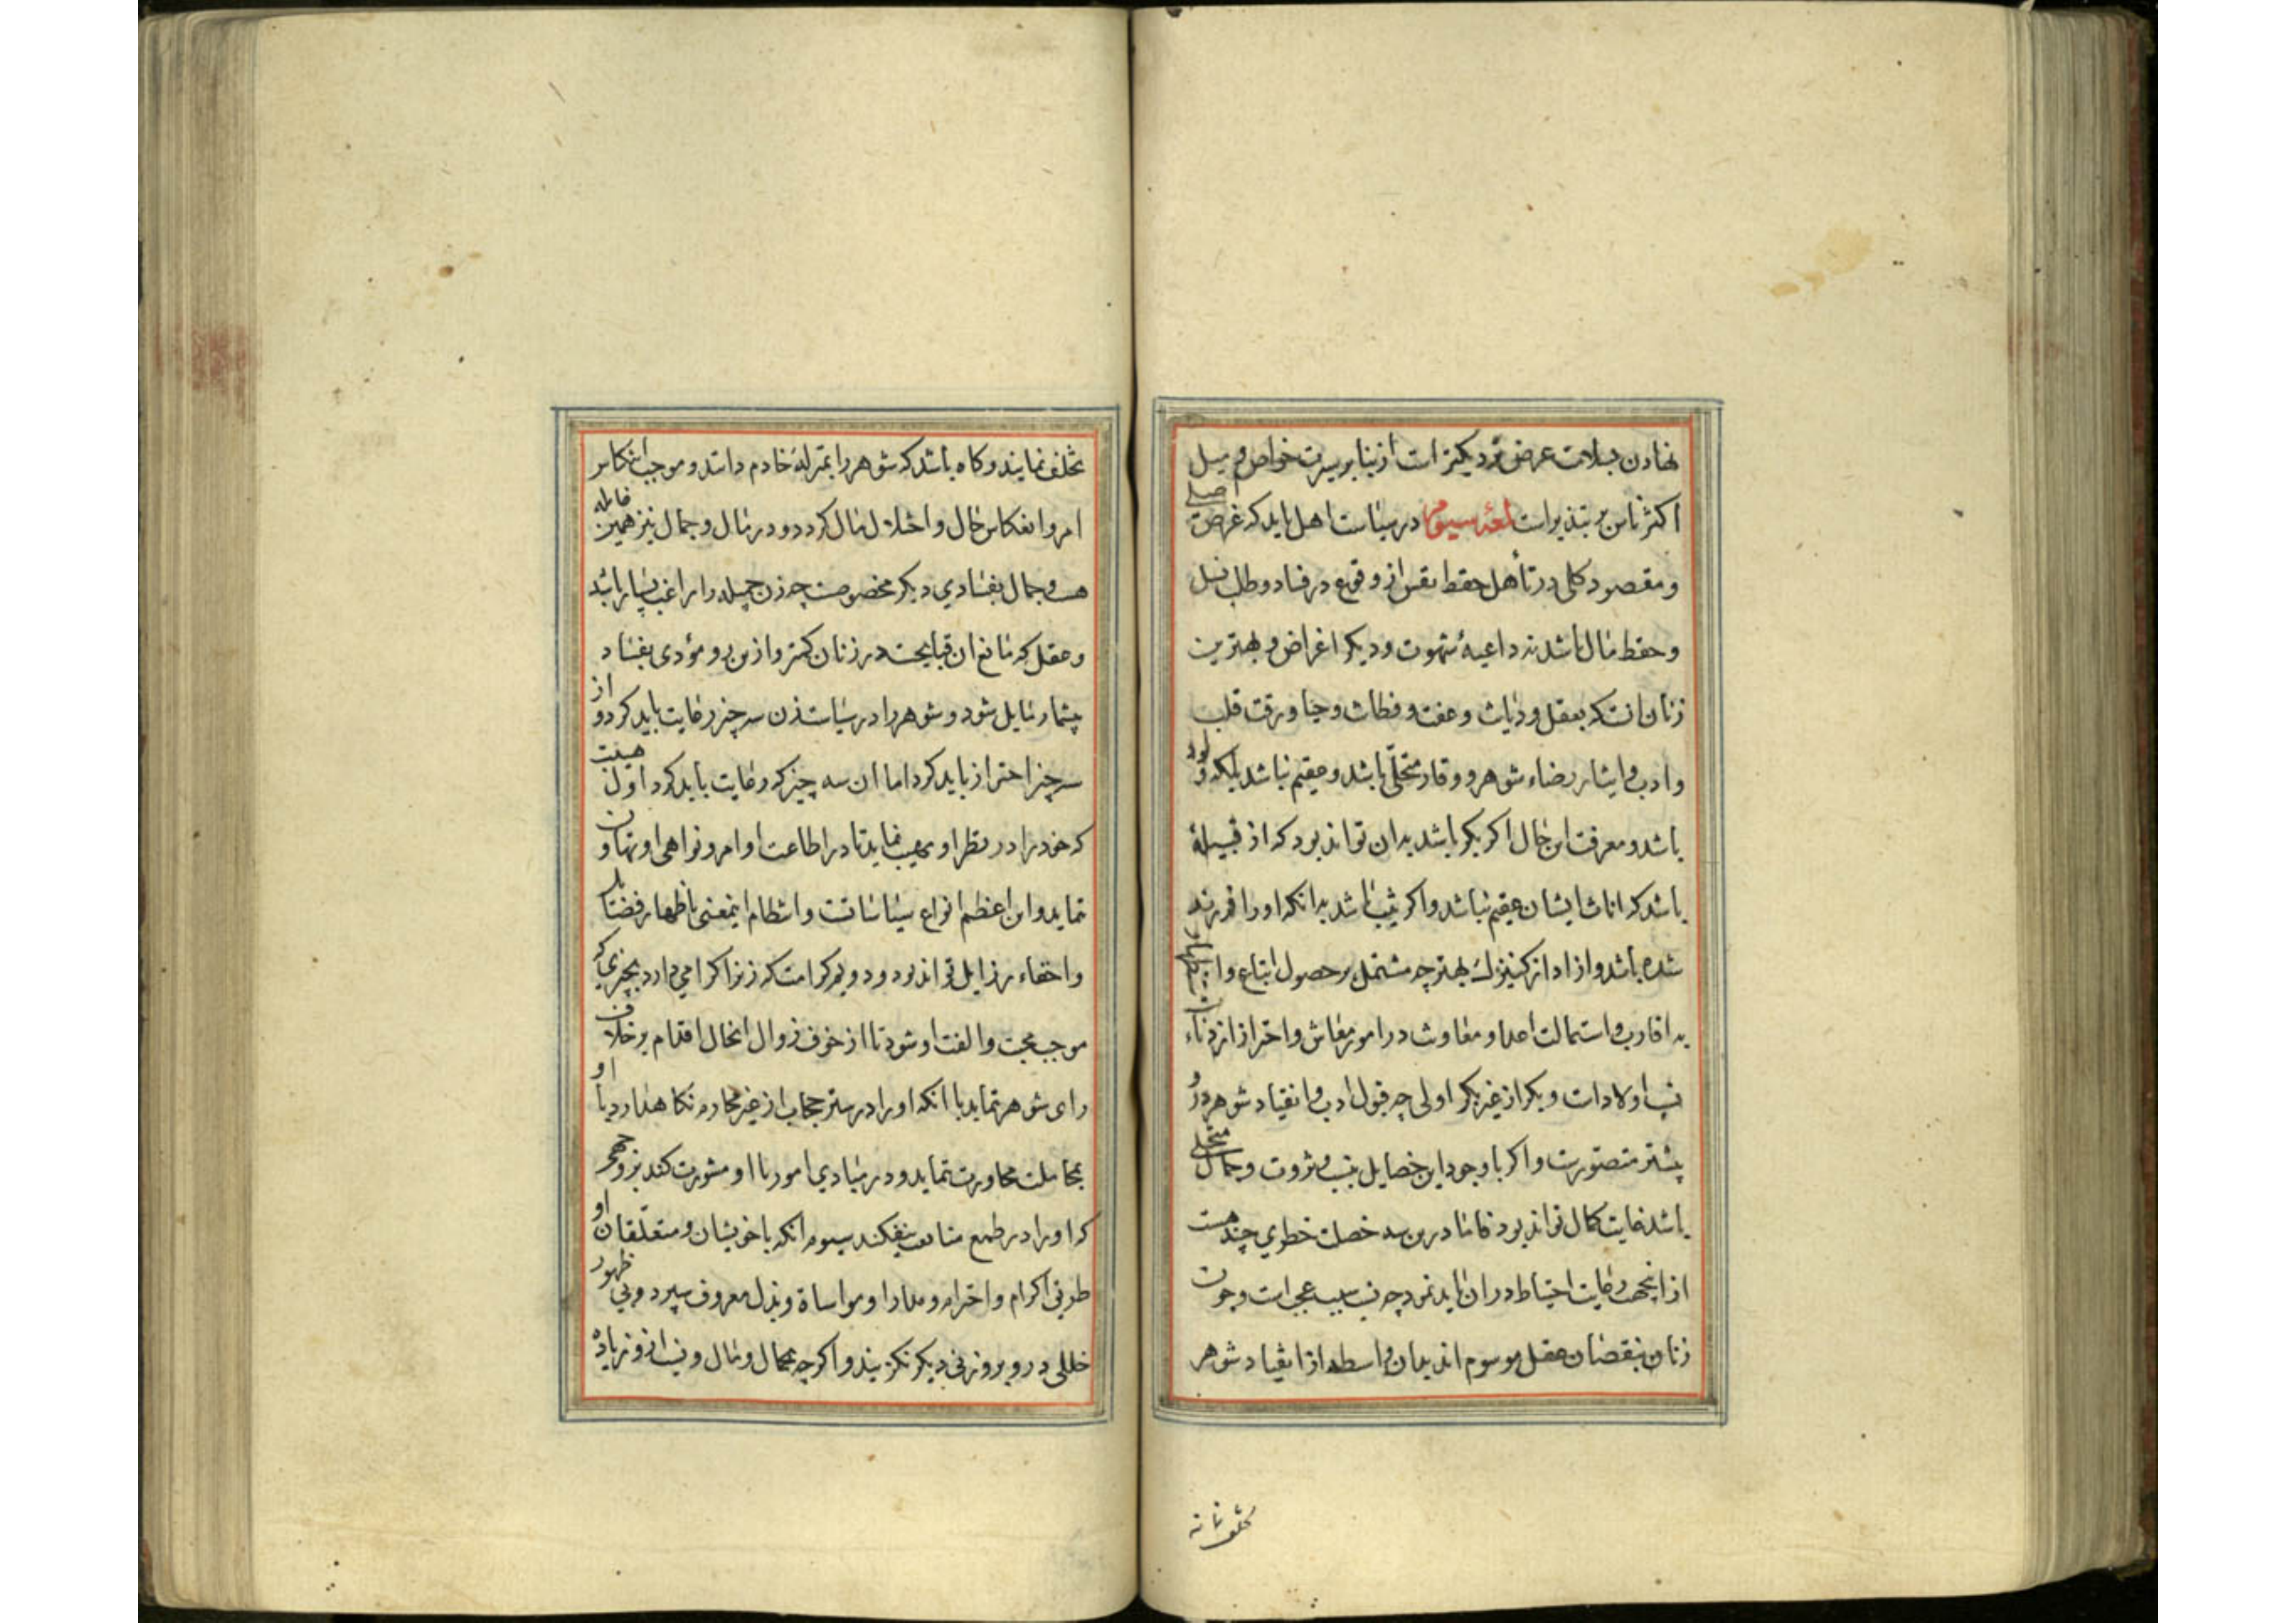 نهادن بسلامت عرض نزدیکتر است ازینا بر سیرت خواص و میل
اکثر ناس بر تبذیر است لمعهٔ سیوم در سیاست اهل باید که غرض اصلی
و مقصود کلی در تأهل حفظ نفس از وقوع در فساد و طلب نسل
و حفظ مال باشد نه داعیهٔ شهوت و دیگر اغراض و بهترین
زنان انست که بعقل و دیانت و عفت و فطانت و حیا و رقت قلب
و ادب و ایثار رضاء شوهر و وقار متحلی باشد و عقیم نباشد بلکه ولود
باشد و معرفت این حال اکر بکر باشد بدان تواند بود که از قبیلهٔ
باشد که اناث ایشان عقیم نباشد و اکر ثیب باشد بدانکه او را فرزند
شده باشد و ازاد از کنیزک بهتر چه مشتمل بر حصول اتباع و استظهار
به اقارب و استمالت اعدا و معاونت در امور معاش و احتراز از دناءت
نسب اولاد است و بکر از غیر بکر اولی چه قبول ادب و انقیاد شوهر درو
بیشتر متصورست و اکر با وجود این خصایل بنسب و ثروت و جمال متحلی
باشد غایت کمال تواند بود فاما درین سه خصلت خطری چند هست
از انجهت رعایت احتیاط در ان باید نمود چه نسب سبب عجب است و چون
زنان بنقصان عقل موسوم اند بدان واسطه از انقیاد شوهر
تخلف نمایند
تخلف نمایند و کاه باشد که شوهر را بمنزلهٔ خادم دانند و موجب انتکاس
امر و انعکاس حال و اختلال مال کردد و در مال و جمال نیز همین غایله
هست و جمال بفسادی دیکر مخصوصست چه زن جمیله را راغب بسیار باشد
و عقل که مانع از قبایحست در زنان کمتر و ازین رو مؤدی بفساد
بیشمار شود و شوهر را در سیاست زن سه چیز رعایت باید کرد و از
سه چیز احتراز باید کرد اما ان سه چیز که رعایت باید کرد اول هیبت
که خود را در نظر او مهیب نماید تا در اطاعت اوامر و نواهی او تهاون
ننماید و این اعظم انواع سیاساتست و انتظام اینمعنی باظهار فضایل
و اخفاء رذایل تواند بود دویم کرامت که زن را کرامی دارد بچیزی که
موجب محبت و الفت او شود تا از خوف زوال انحال اقدام بر خلاف
رای شوهر ننماید با انکه او را در ستر حجاب از غیر محارم نکاه دارد و با او
بمجاملت محاورت نماید و در مبادی امور با او مشورت کند بر وجهی
که او را در طمع متابعت نیفکند سیوم انکه با خویشان و متعلقان او
طریق اکرام و احترام و مدارا و مواساة و بذل معروف سپرد و بی ظهور
خللی درو برو زنی دیکر نکزیند و اکرچه بجمال و مال و نسب ازو زیاده